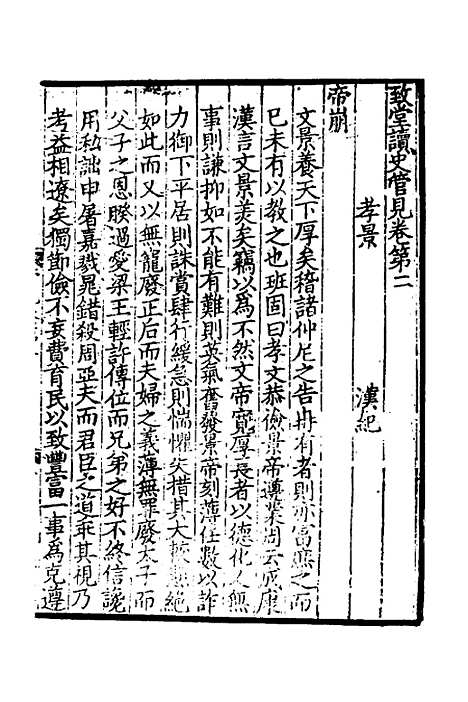 致堂讀史管見卷第二
孝景　漢紀
帝崩
文景養天下厚矣稽諸仲尼之告冉有者則亦富庶之而
已未有以教之也班固曰孝文恭儉景帝遵業周云成康
漢言文景美矣竊以為不然文帝寬厚長者以德化人無
事則謙抑如不能有難則英氣奮發景帝刻薄任數以詐
力御下平居則誅賞肆行緩急則惴懼失措其大致懸絶
如此而又以無寵廢正后而夫婦之義薄無罪廢太子而
父子之恩睽過愛梁王輕許傳位而兄弟之好不終信讒
用私詘申屠嘉戮晁錯殺周亞夫而君臣之道乖其視乃
考益相遼矣獨節儉不妄費育民以致豐富一事為克遵